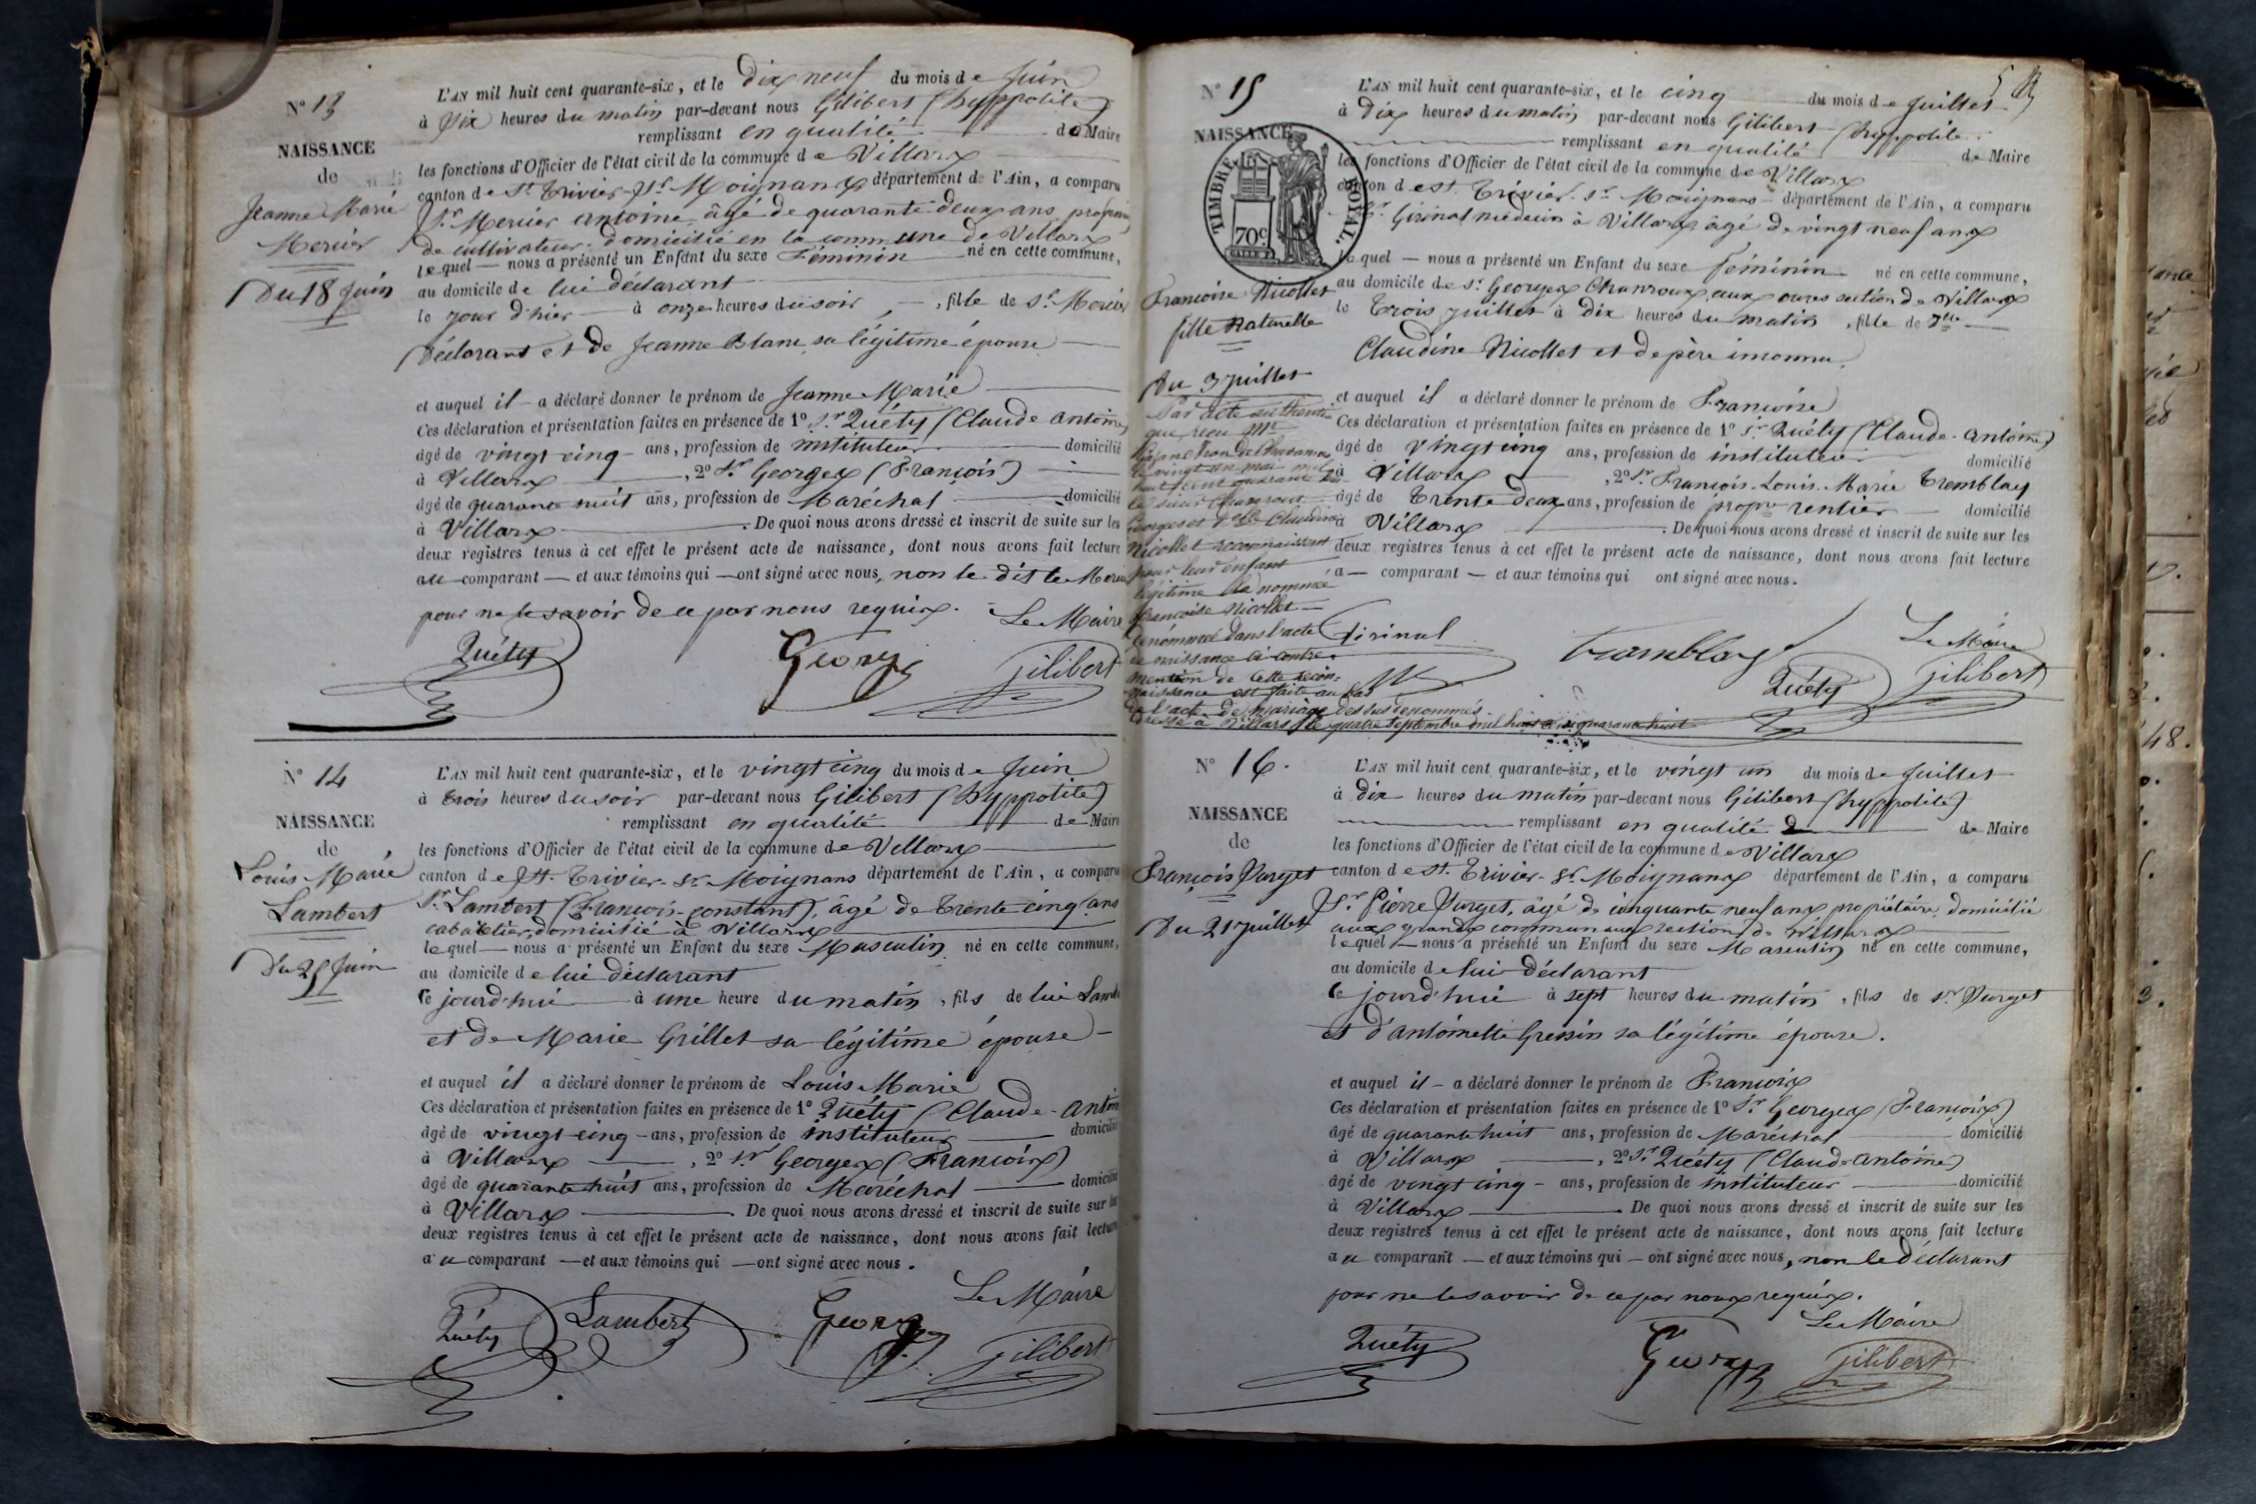 N° 13
NAISSANCE
de
Jeanne Marie
Mercier
Du 18 Juin
L'AN mil huit cent quarante-six, et le dix neuf du mois de Juin
à six heures du matin par-devant nous Gilibert (hyppolite)
remplissant en qualité de Maire
les fonctions d'Officier de l'état civil de la commune de Villars
canton de St. Trivier-Sr-Moignans département de l'Ain, a comparu
Sr. Mercier antoine âgé de quarante deux ans profession
de cultivateur domicilié en la commune de Villars
lequel — nous a présenté un Enfant du sexe Féminin né en cette commune,
au domicile de lui déclarant
le jour d'hier à onze heures du soir, fille de Sr Mercier
déclarant et de Jeanne Blanc sa légitime épouse
et auquel il a déclaré donner le prénom de Jeanne Marie
Ces déclaration et présentation faites en présence de 1° Sr Quéty (Claude Antoine)
âgé de vingt cinq ans, profession de instituteur domicilié
à Villars, 2° Sr Georges (François)
âgé de quarante huit ans, profession de Maréchal domicilié
à Villars. De quoi nous avons dressé et inscrit de suite sur les
deux registres tenus à cet effet le présent acte de naissance, dont nous avons fait lecture
au comparant — et aux témoins qui — ont signé avec nous, non le dit Sr Mercier
pour ne le savoir de ce par nous requis. Le Maire
Quéty Georges Gilibert
N° 14
NAISSANCE
de
Louis Marie
Lambert
Du 25 Juin
L'AN mil huit cent quarante-six, et le vingt cinq du mois de Juin
à trois heures du soir par-devant nous Gilibert (hyppolite)
remplissant en qualité de Maire
les fonctions d'Officier de l'état civil de la commune de Villars
canton de St. Trivier-Sr-Moignans département de l'Ain, a comparu
Sr. Lambert (François-constant), âgé de trente cinq ans
cabaretier, domicilié à Villars
lequel — nous a présenté un Enfant du sexe Masculin né en cette commune,
au domicile de lui déclarant
le jourd'hui à une heure du matin, fils de lui Lambert
et de Marie Grillet sa légitime épouse —
et auquel il a déclaré donner le prénom de Louis Marie
Ces déclaration et présentation faites en présence de 1° Quéty (Claude-Antoine
âgé de vingt cinq ans, profession de instituteur domicilié
à Villars, 2° Sr Georges (François)
âgé de quarante huit ans, profession de Maréchal domicilié
à Villars. De quoi nous avons dressé et inscrit de suite sur les
deux registres tenus à cet effet le présent acte de naissance, dont nous avons fait lecture
au comparant — et aux témoins qui — ont signé avec nous.
Le Maire
Quéty Lambert Georges Gilibert
5
N° 15
NAISSANCE
TIMBRE ROYAL.
70c
Françoise Nicollet
fille Naturelle
Du 3 Juillet
Par acte authenti-
que, reçu Me
vingt un mai mil
huit cent quarante
le sieur Chanroux
Georges et Dlle Claudine
Nicollet reconnaissent
pour leur enfant
légitime la nommée
françoise Nicollet
dénommée dans l'acte
de naissance ci-contre.
mention de cette recon-
naissance est faite au bas
de l'acte de mariage des sus dénommés
dressé à Villars le quatre septembre mil huit cent quarante huit
L'AN mil huit cent quarante-six, et le cinq du mois de Juillet
à dix heures du matin par-devant nous Gilibert (hyppolite
remplissant en qualité de Maire
les fonctions d'Officier de l'état civil de la commune de Villars
canton de St. Trivier-Sr-Moignans département de l'Ain, a comparu
Sr. Girinal médecin à Villars âgé de vingt neuf ans
lequel — nous a présenté un Enfant du sexe féminin né en cette commune,
au domicile de Sr. Georges Chanroux, aux oures section de Villars
le trois juillet à dix heures du matin, fille de Dlle
Claudine Nicollet et de père inconnu.
et auquel il a déclaré donner le prénom de Françoise
Ces déclaration et présentation faites en présence de 1° Sr Quéty (Claude-Antoine)
âgé de vingt cinq ans, profession de instituteur domicilié
à Villars, 2° Sr François-Louis-Marie Tremblay
âgé de trente deux ans, profession de propre rentier domicilié
à Villars. De quoi nous avons dressé et inscrit de suite sur les
deux registres tenus à cet effet le présent acte de naissance, dont nous avons fait lecture
a — comparant — et aux témoins qui ont signé avec nous.
Le Maire
Girinal Tremblay Quéty Gilibert
N° 16.
NAISSANCE
de
François Purget
Du 21 Juillet
L'AN mil huit cent quarante-six, et le vingt un du mois de Juillet
à dix heures du matin par-devant nous Gilibert (hyppolite)
remplissant en qualité de Maire
les fonctions d'Officier de l'état civil de la commune de Villars
canton de St. Trivier-Sr-Moignans département de l'Ain, a comparu
Sr. Pierre Purget, âgé de cinquante neuf ans propriétaire, domicilié
aux grands communaux section de Villars
lequel — nous a présenté un Enfant du sexe Masculin né en cette commune,
au domicile de lui déclarant
le jourd'hui à sept heures du matin, fils de Sr Purget
et d'Antoinette Gressin sa légitime épouse.
et auquel il — a déclaré donner le prénom de François
Ces déclaration et présentation faites en présence de 1° Sr Georges (François)
âgé de quarante huit ans, profession de Maréchal domicilié
à Villars, 2° Sr Quéty (Claude Antoine)
âgé de vingt cinq — ans, profession de instituteur domicilié
à Villars. De quoi nous avons dressé et inscrit de suite sur les
deux registres tenus à cet effet le présent acte de naissance, dont nous avons fait lecture
au comparant — et aux témoins qui — ont signé avec nous, non le déclarant
pour ne le savoir de ce par nous requis.
Le Maire
Quéty Georges Gilibert
48.